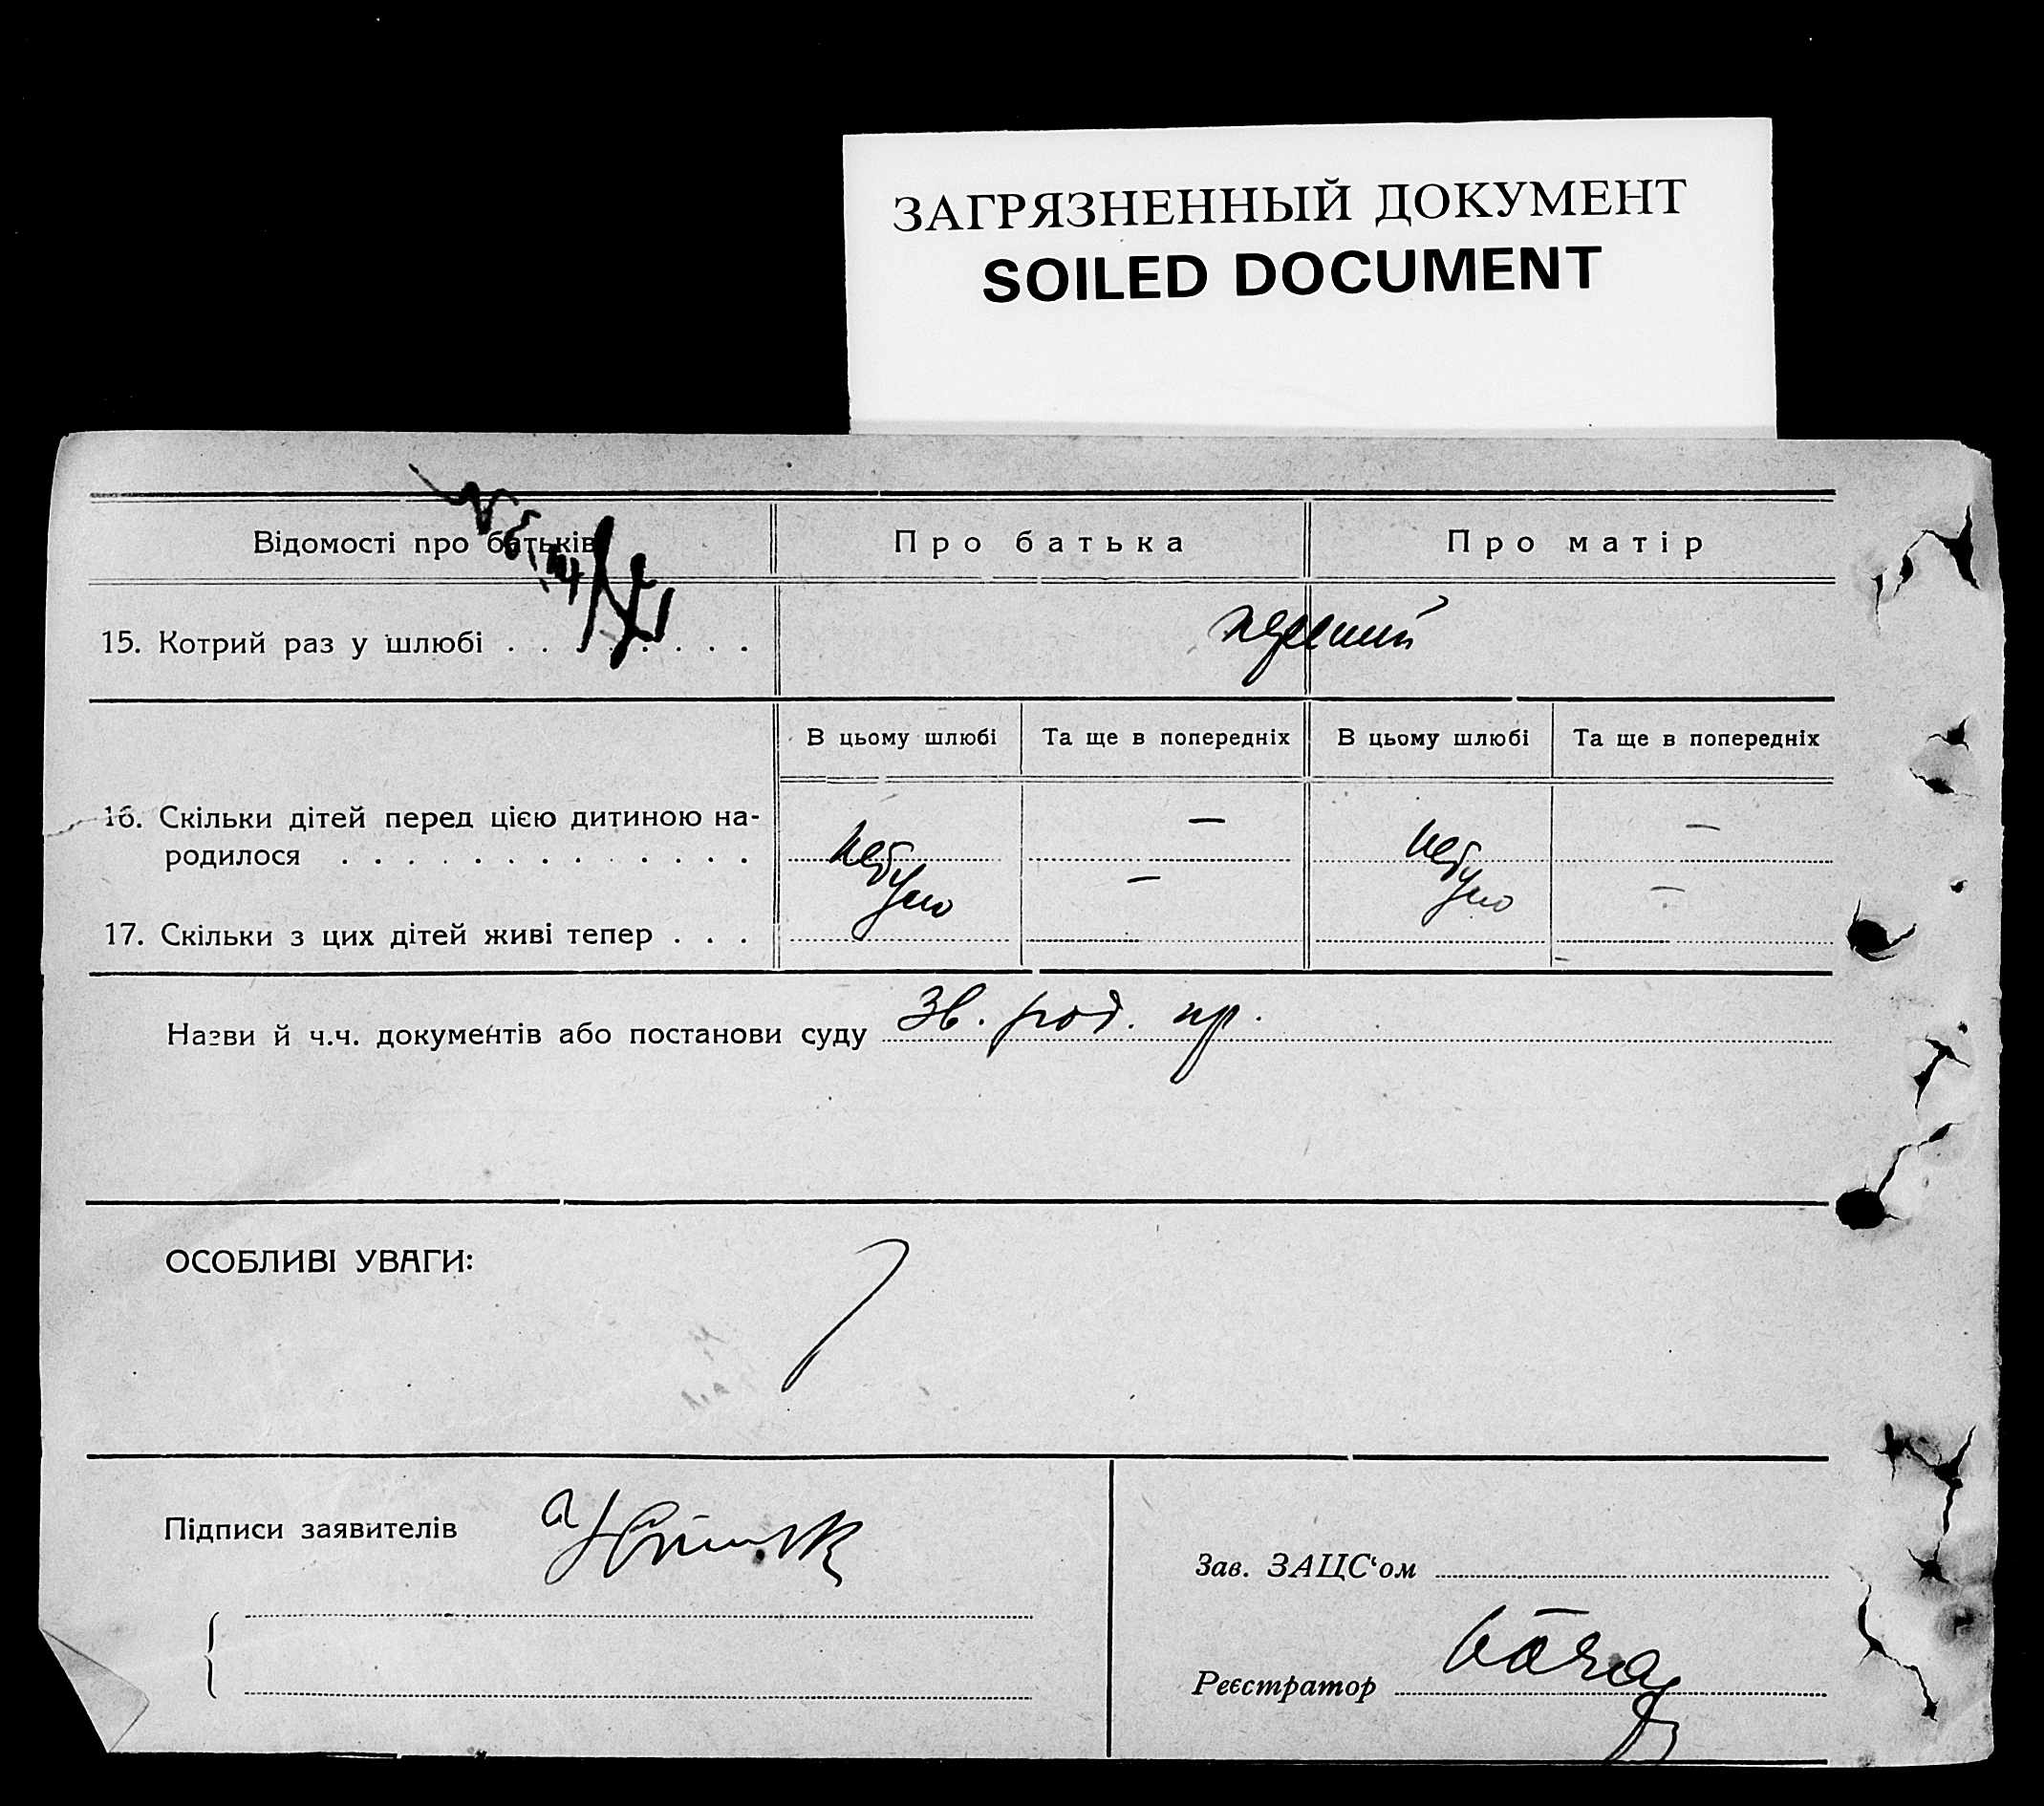 ЗАГРЯЗНЕННЫЙ ДОКУМЕНТ
SOILED DOCUMENT
Відомості про батьків
Про батька
Про матір
15. Котрий раз у шлюбі . . . . . . . .
перший
В цьому шлюбі
Та ще в попередніх
В цьому шлюбі
Та ще в попередніх
16. Скільки дітей перед цією дитиною на-
родилося . . . . . . . . . . . . .
не було
—
не було
—
17. Скільки з цих дітей живі тепер . . .
—
—
Назви й ч.ч. документів або постанови суду Зв. род. пр.
ОСОБЛИВІ УВАГИ:
Підписи заявителів
Зав. ЗАЦС‘ом
Реєстратор